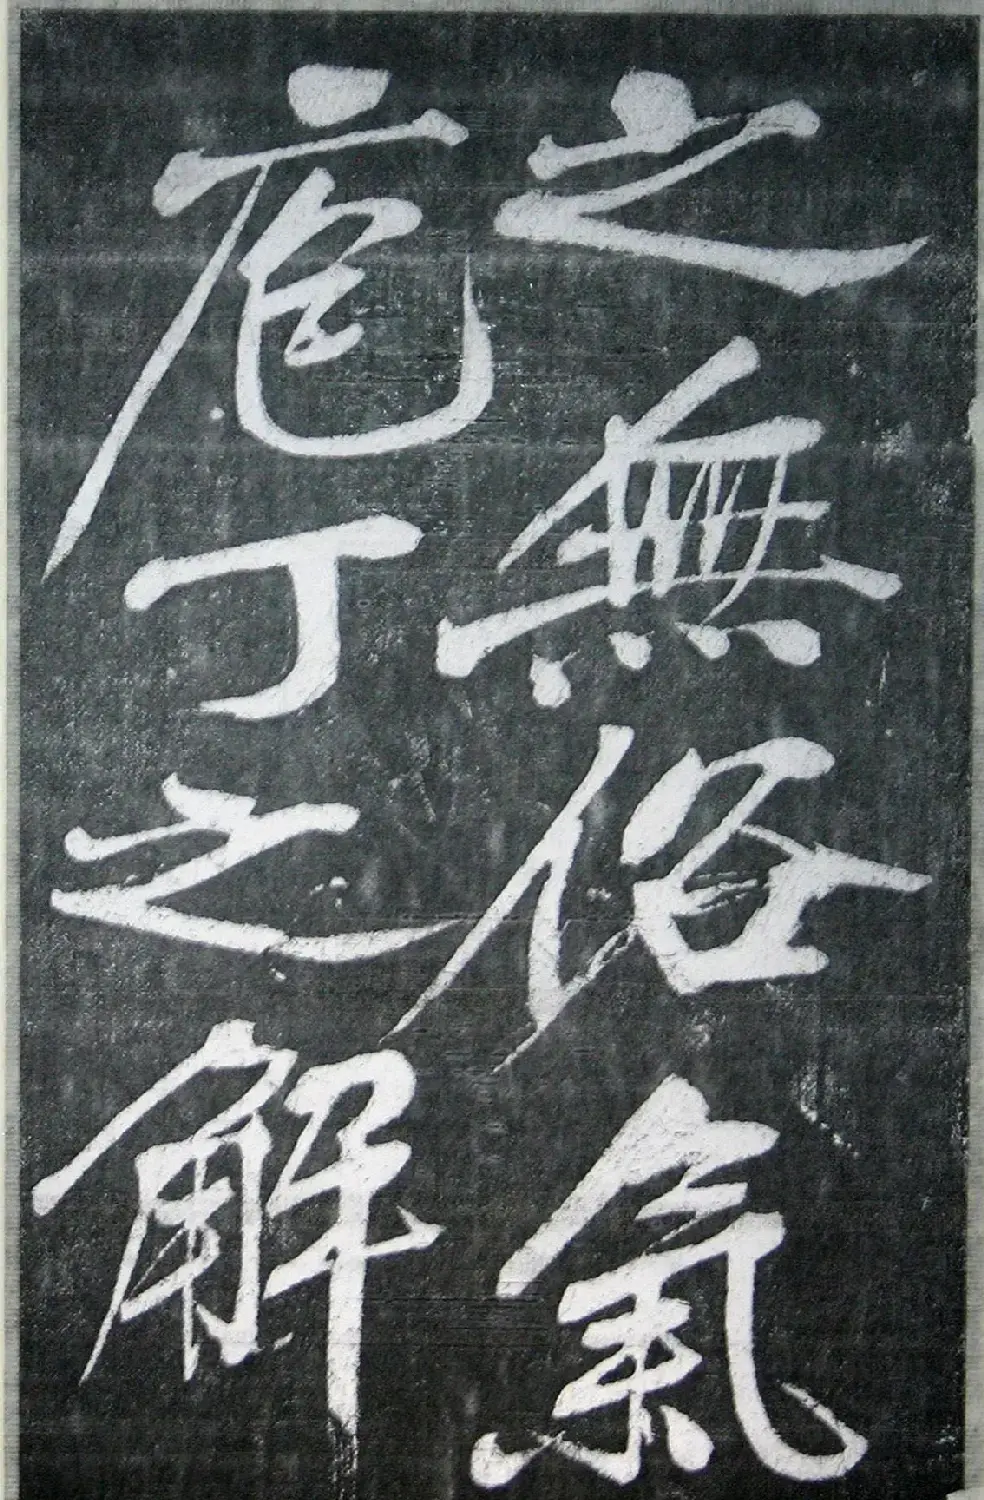 之無俗氣
庖丁之解